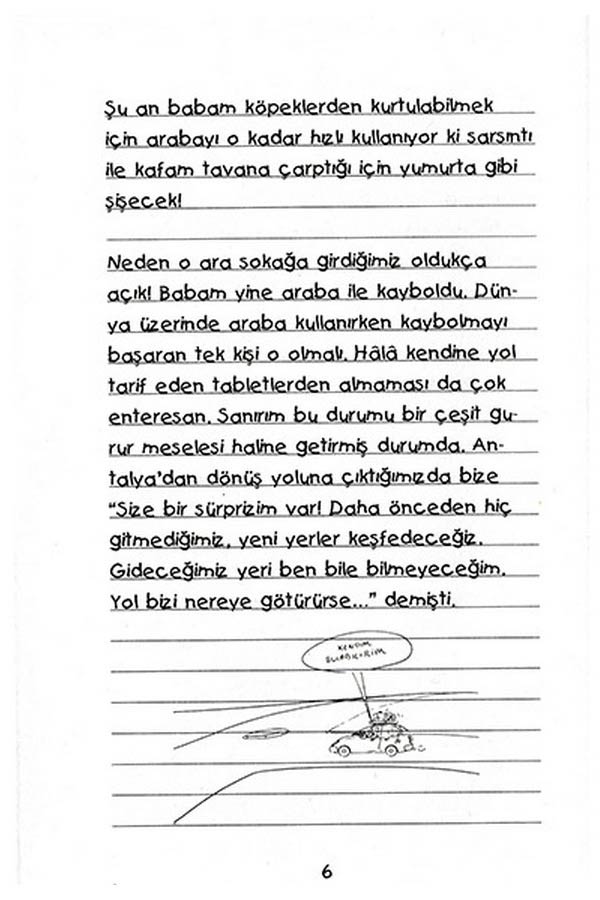 Şu an babam köpeklerden kurtulabilmek
için arabayı o kadar hızlı kullanıyor ki sarsıntı
ile kafam tavana çarptığı için yumurta gibi
şişecek!
Neden o ara sokağa girdiğimiz oldukça
açık! Babam yine araba ile kayboldu. Dün-
ya üzerinde araba kullanırken kaybolmayı
başaran tek kişi o olmalı. Hâlâ kendine yol
tarif eden tabletlerden almaması da çok
enteresan. Sanırım bu durumu bir çeşit gu-
rur meselesi haline getirmiş durumda. An-
talya'dan dönüş yoluna çıktığımızda bize
"Size bir sürprizim var! Daha önceden hiç
gitmediğimiz, yeni yerler keşfedeceğiz.
Gideceğimiz yeri ben bile bilmeyeceğim.
Yol bizi nereye götürürse..." demişti.
KENDİM
BULABİLİRİM
6